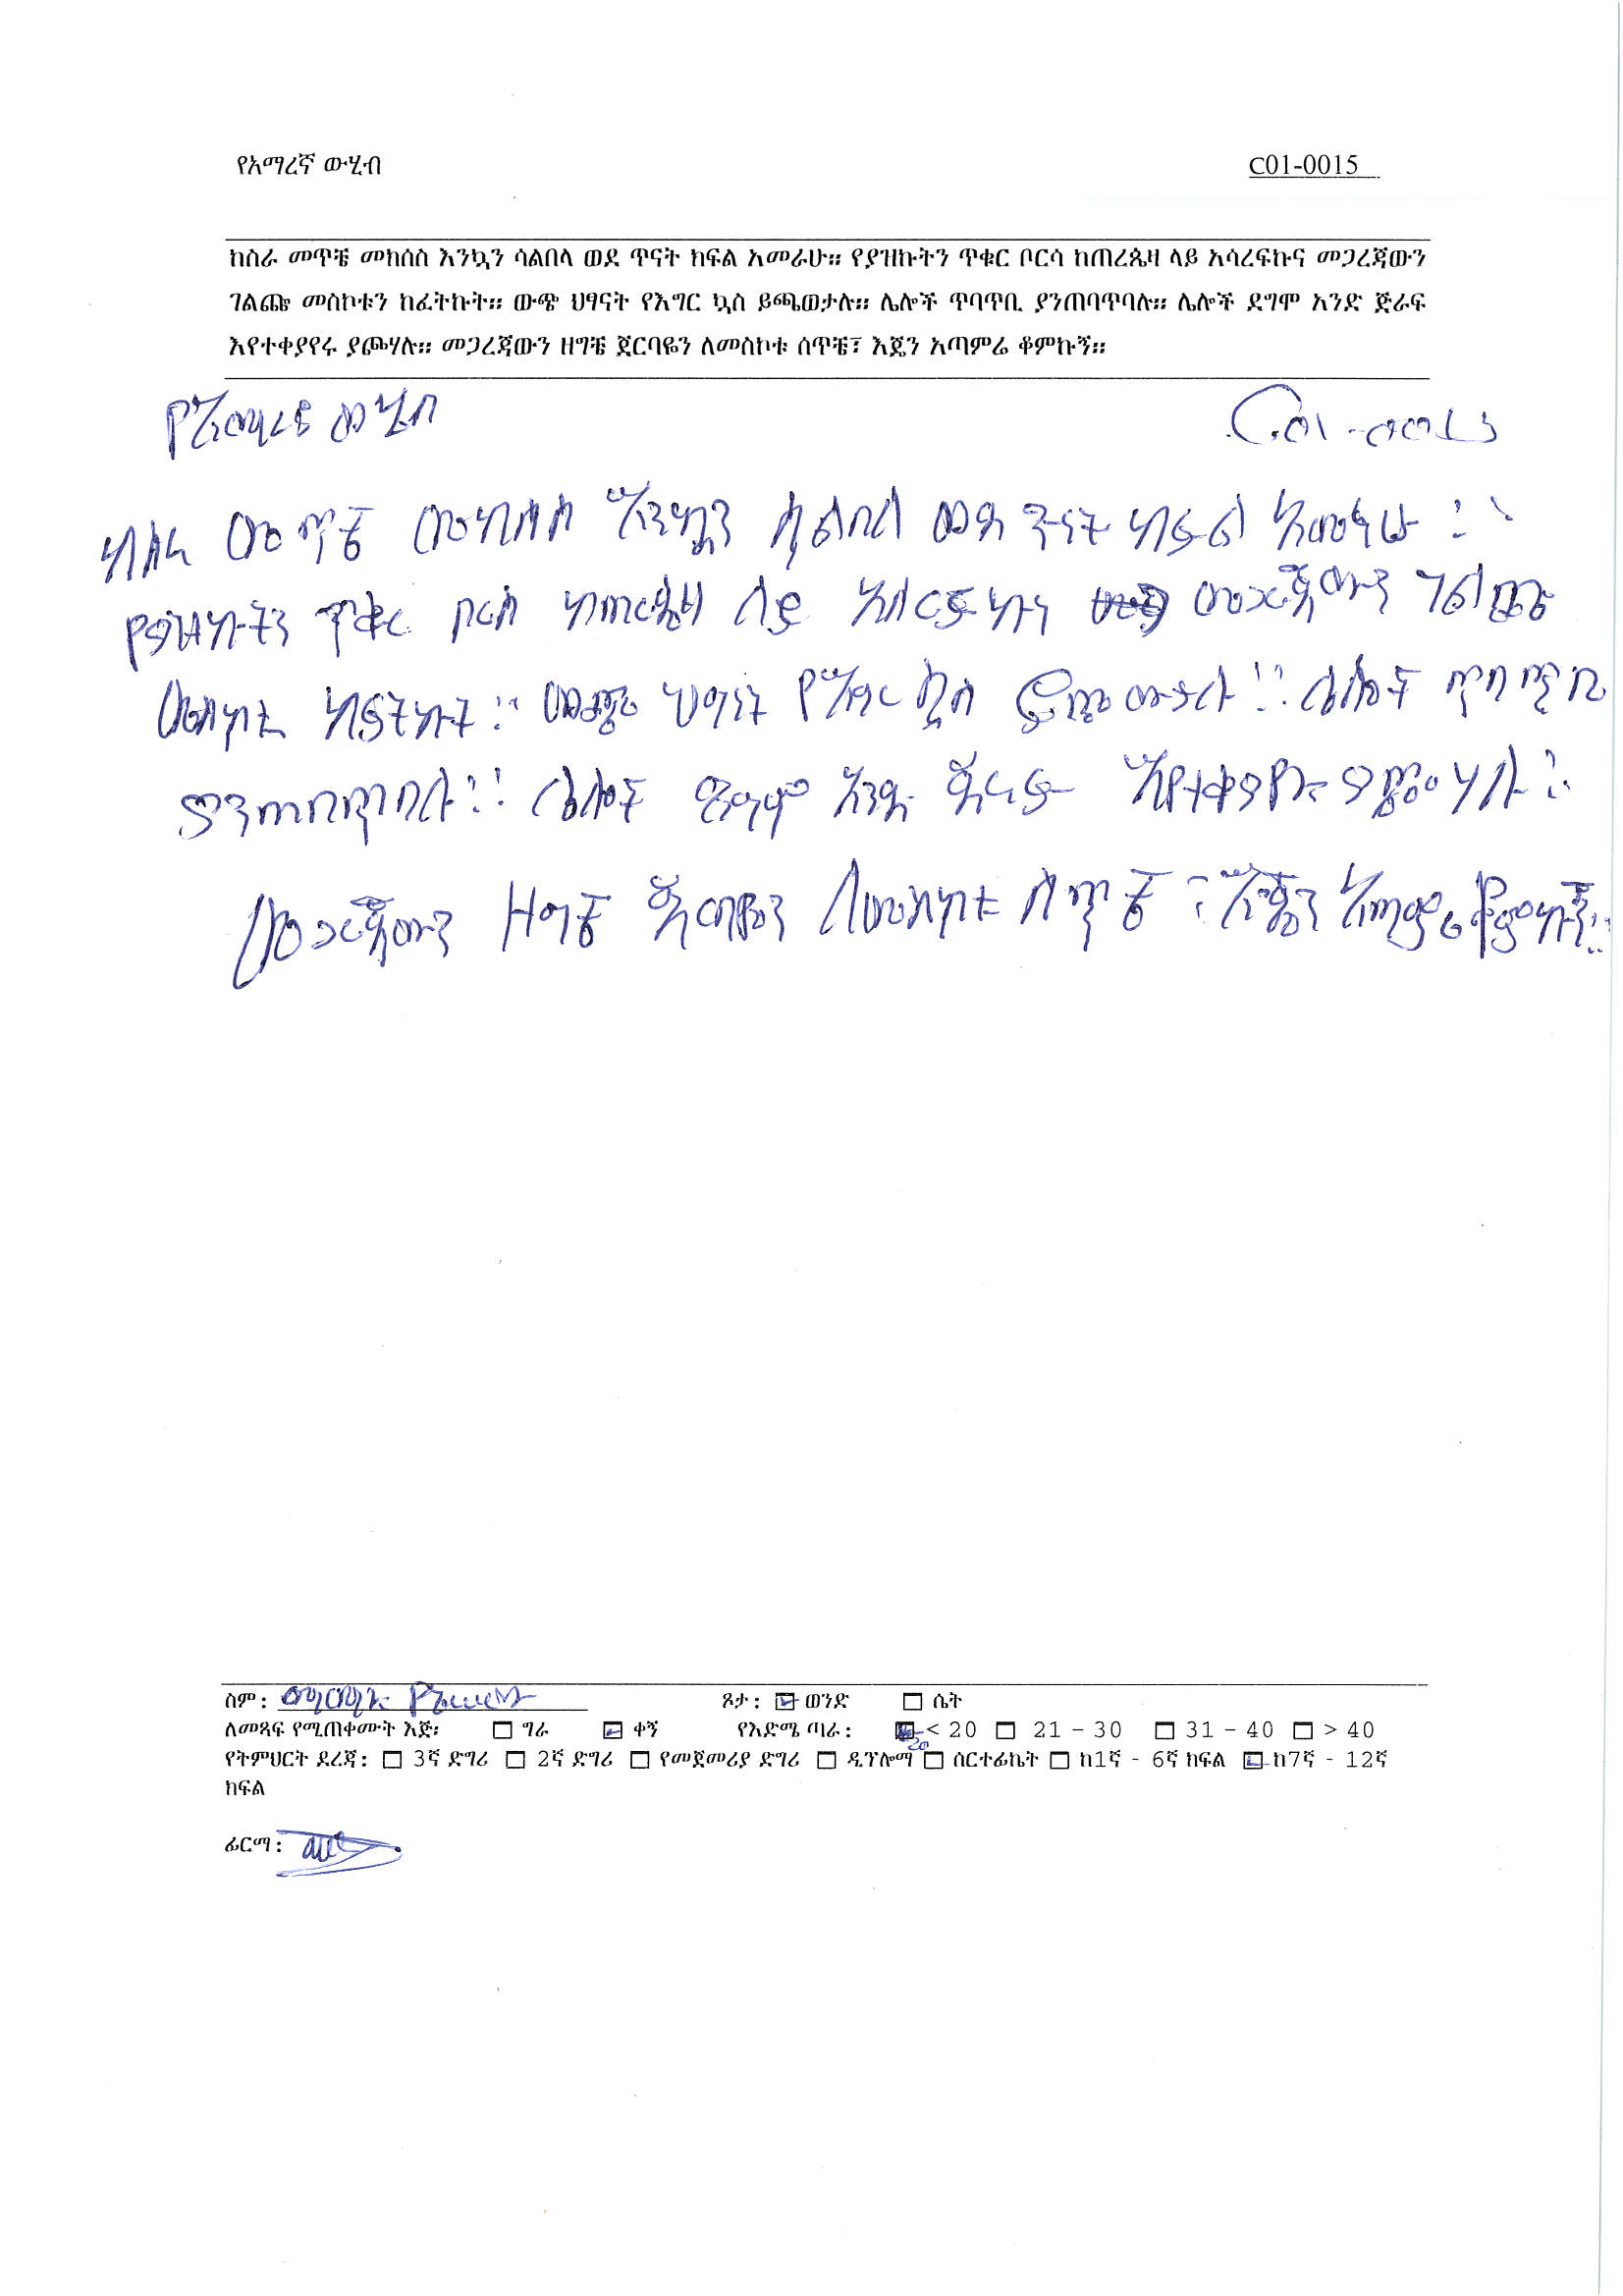 የአማረኛ ውሂብ C01-0015
ከስራ መጥቼ መክሰስ እንኳን ሳልበላ ወደ ጥናት ክፍል አመራሁ። የያዝኩትን ጥቁር ቦርሳ ከጠረጴዛ ላይ አሳረፍኩና መጋረጃውን
ገልጬ መስኮቱን ከፈትኩት። ውጭ ህፃናት የእግር ኳስ ይጫወታሉ። ሌሎች ጥባጥቢ ያንጠባጥባሉ። ሌሎች ደግሞ አንድ ጅራፍ
እየተቀያየሩ ያጮሃሉ። መጋረጃውን ዘግቼ ጀርባዬን ለመስኮቱ ሰጥቼ፣ እጄን አጣምሬ ቆምኩኝ።
የአማረኛ ውሂብ C01-0015
ከስራ መጥቼ መክሰስ እንኳን ሳልበላ ወደ ጥናት ክፍል አመራሁ ።
የያዝኩትን ጥቁር ቦርሳ ከጠረጴዛ ላይ አሳርፍኩና መጋረጃውን ገልጬ
መስኮቱ ከፍትኩት ። ውጭ ህፃናት የእግር ኳስ ይጫወታሉ ። ሌሎች ጥባጥቢ
ያንጠባጥባሉ ። ሌሎች ደግሞ አንድ ጅራፍ እየተቀያየሩ ያጮሃሉ ።
መጋረጃውን ዘግቼ ጀርባዬን ለመስኮቱ ሰጥቼ ፣ እጄን አጣምሬ ቆምኩኝ ።
ስም: ጾታ: ወንድ ሴት
ለመጻፍ የሚጠቀሙት እጅ: ግራ ቀኝ የእድሜ ጣራ: < 20 21 – 30 31 – 40 > 40
20
የትምህርት ደረጃ: 3ኛ ድግሪ 2ኛ ድግሪ የመጀመሪያ ድግሪ ዲፕሎማ ሰርተፊኬት ከ1ኛ - 6ኛ ክፍል ከ7ኛ - 12ኛ
ክፍል
ፊርማ: